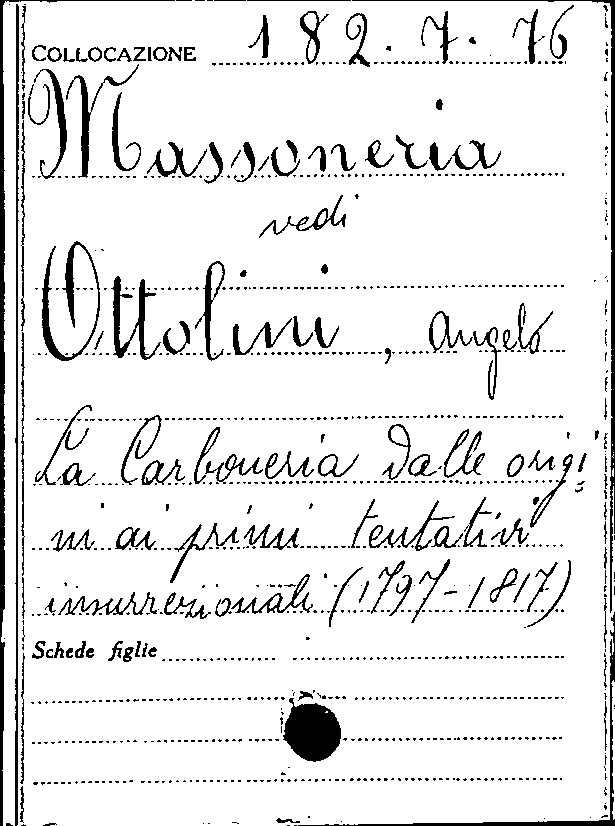 COLLOCAZIONE 182.7.76
Massoneria
vedi
Ottolini, Angelo
La Carboneria dalle origi=
ni ai primi tentativi
insurrezionali (1797-1817)
Schede figlie